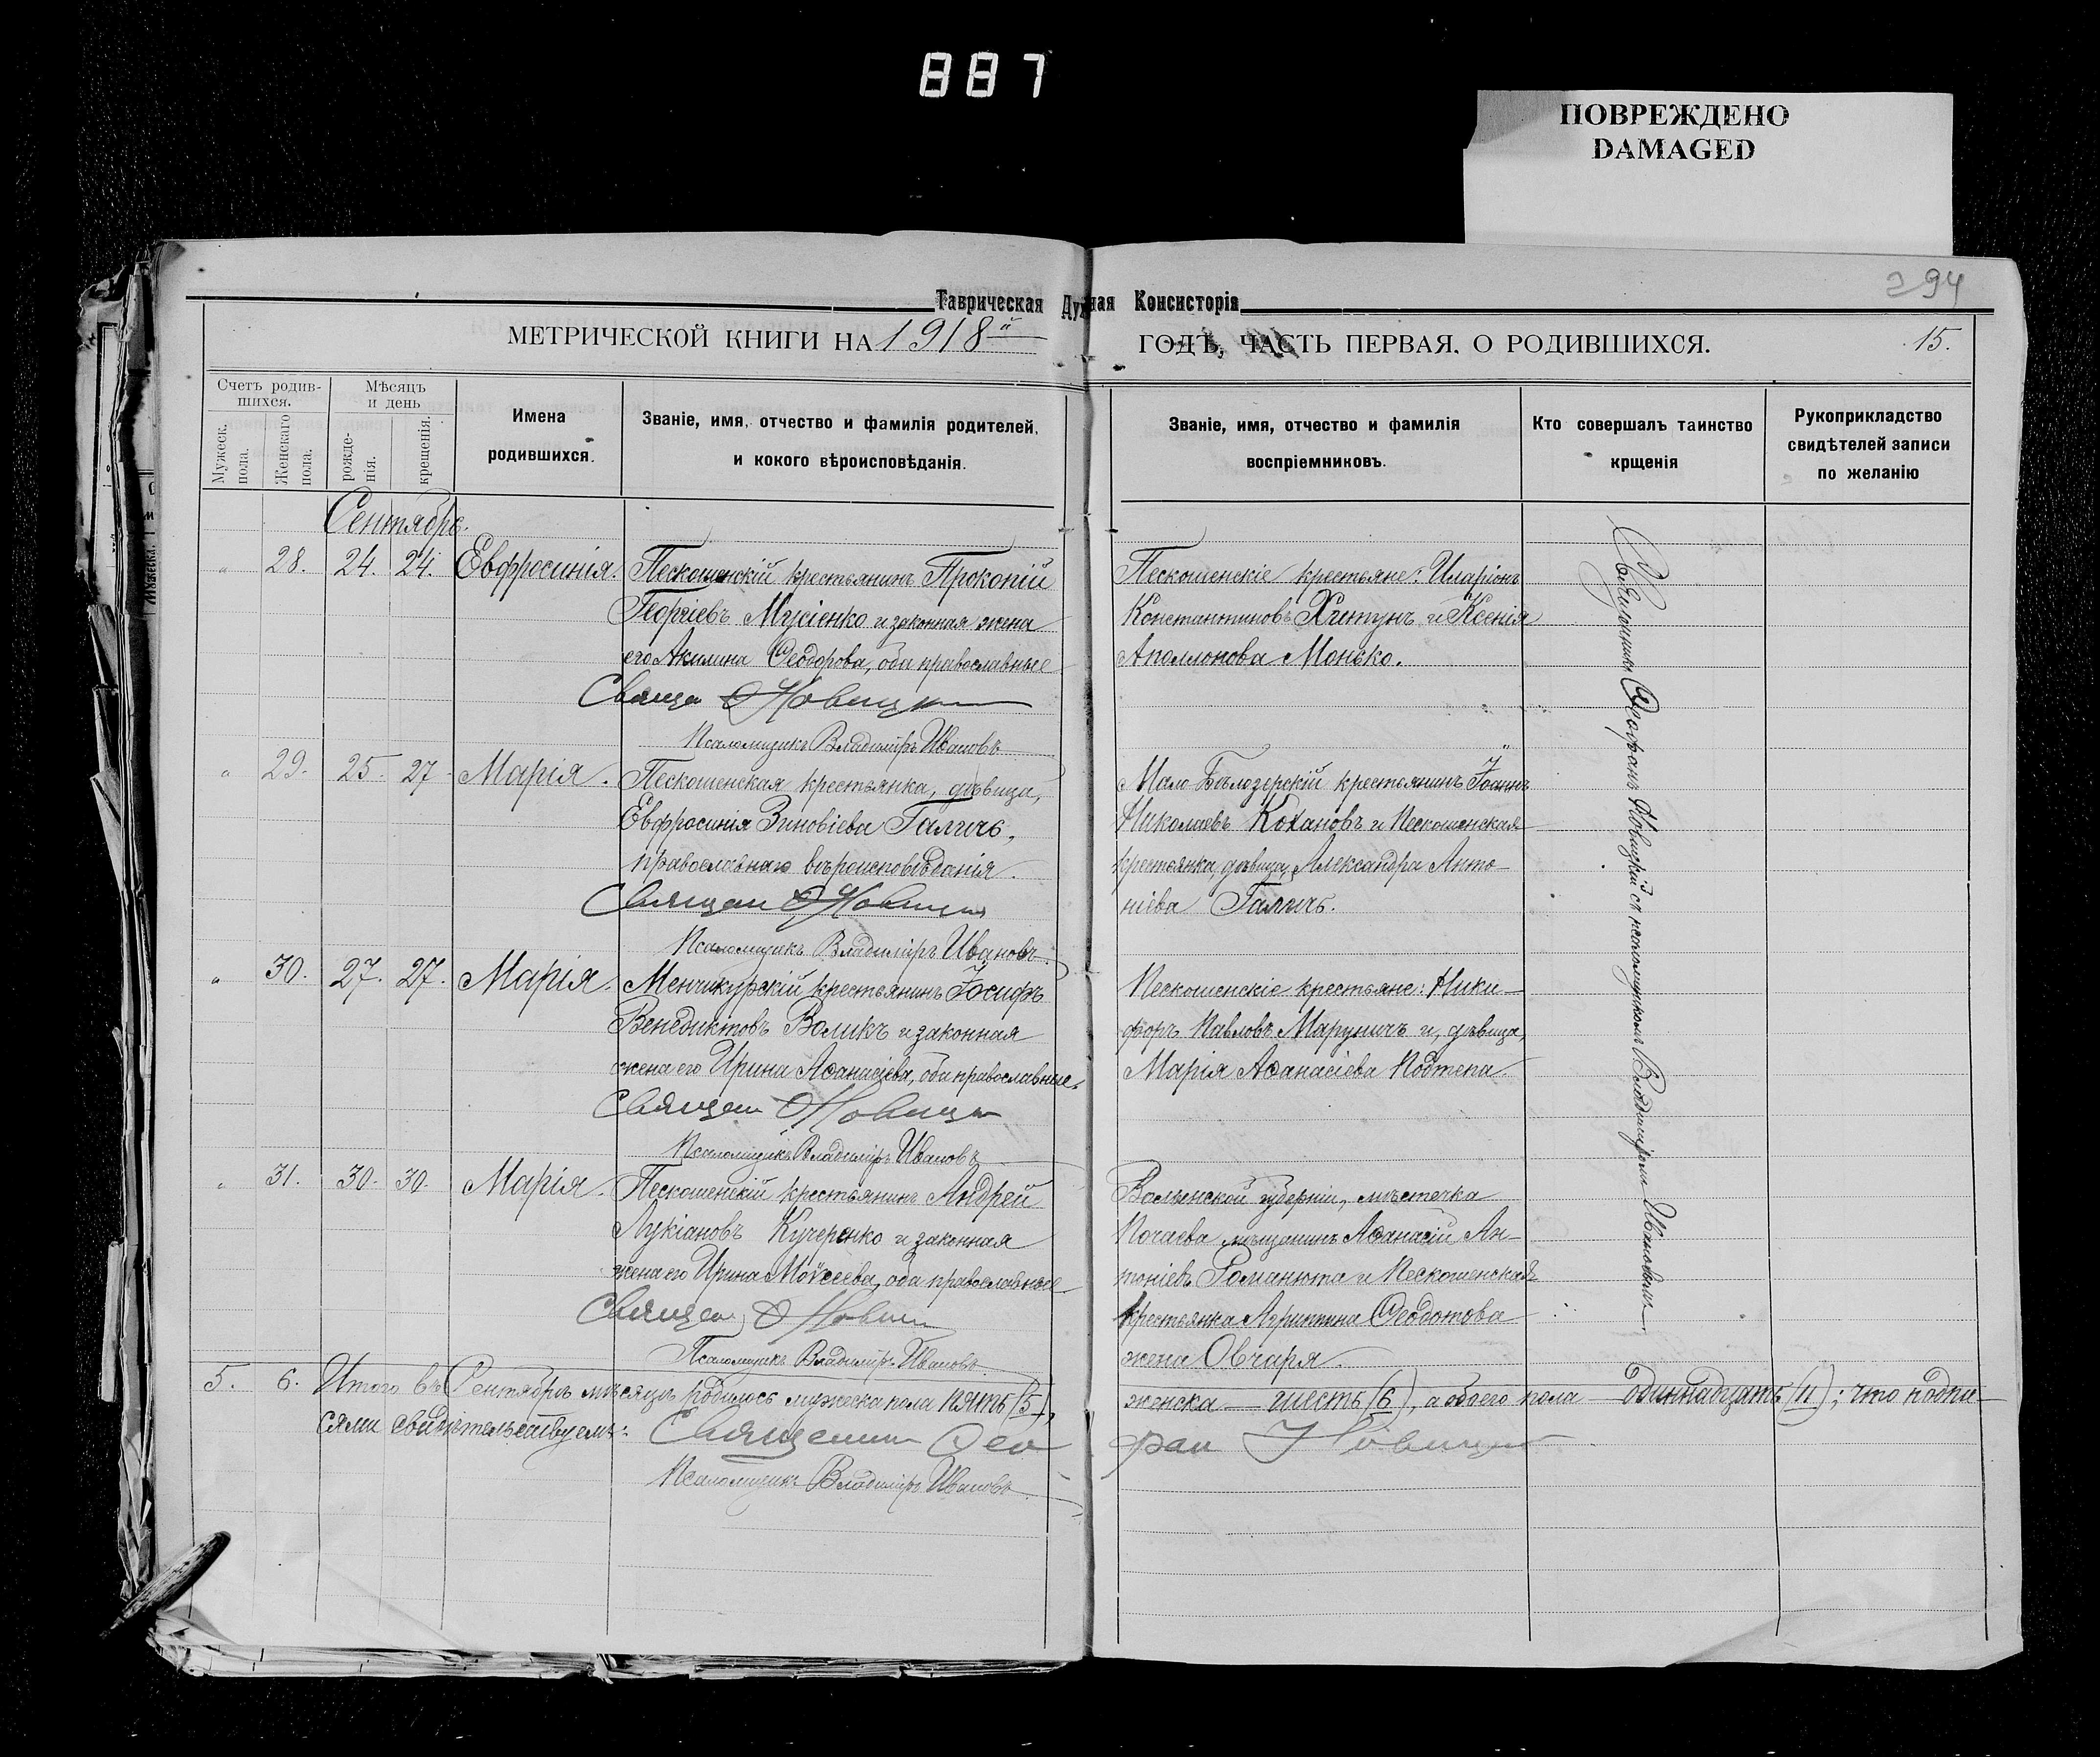 887
ПОВРЕЖДЕНО
DAMAGED
294
Таврическая Духная Консисторія
МЕТРИЧЕСКОЙ КНИГИ НА 1918й ГОДЪ, ЧАСТЬ ПЕРВАЯ. О РОДИВШИХСЯ. 15.
Счетъ родив-
шихся.
Мужеск.
пола.
Женскаго
пола.
Мѣсяцъ
и день
рожде-
нія.
крещенія.
Имена
родившихся.
Званіе, имя, отчество и фамилія родителей,
и кокого вѣроисповѣданія.
Званіе, имя, отчество и фамилія
воспріемниковъ.
Кто совершалъ таинство
крщенія
Рукоприкладство
свидѣтелей записи
по желанію
Сентябрь.
" 28. 24. 24. Евфросинія.
Пескошенскій крестьянинъ Прокопій
Георгіевъ Мусіенко и законная жена
его Акилина Ѳеодорова, оба православные
Священ Ѳ Новицкі
Псаломщикъ Владиміръ Ивановъ
Пескошенскіе крестьяне: Иларіонъ
Константиновъ Хитунъ и Ксенія
Аполлонова Монько.
" 29. 25. 27. Марія.
Пескошенская крестьянка, дѣвица,
Евфросинія Зиновіева Галичъ,
православнаго вѣроисповѣданія.
Священ Ѳ Новицкі
Псаломщикъ Владиміръ Ивановъ
Мало-Бѣлозерскій крестьянинъ Іоаннъ
Николаевъ Кохановъ и Пескошенская
крестьянка, дѣвица, Александра Анто-
ніева Галичъ.
" 30. 27. 27. Марія.
Менчикурскій крестьянинъ Іосифъ
Венедиктовъ Воликъ и законная
жена его Ирина Аѳанасіева, оба православные.
Священ Ѳ Новицкі
Псаломщикъ Владиміръ Ивановъ
Пескошенскіе крестьяне: Ники-
форъ Павловъ Маруничъ и, дѣвица,
Марія Аѳанасіева Подтепа
" 31. 30. 30. Марія.
Пескошенскій крестьянинъ Андрей
Лукіановъ Кучеренко и законная
жена его Ирина Моѵсеева, оба православные
Священ Ѳ Новицкі
Псаломщикъ Владиміръ Ивановъ
Волынской губерніи, мѣстечка
Почаева мѣщанинъ Аѳанасій Ан-
тоніевъ Романюта и Пескошенская
крестьянка Агриппина Ѳеодотова
жена Овчаря.
Священникъ Ѳеофанъ Новицкій съ псаломщикомъ Владиміромъ Ивановымъ
5. 6. Итого въ Сентябрѣ мѣсяцѣ родилось мужеска пола пять (5), женска — шесть (6), а обоего пола — одиннадцать (11); что подпи-
сями свидѣтельствуемъ: Священник Ѳеофан Новицкі
Псаломщикъ Владиміръ Ивановъ